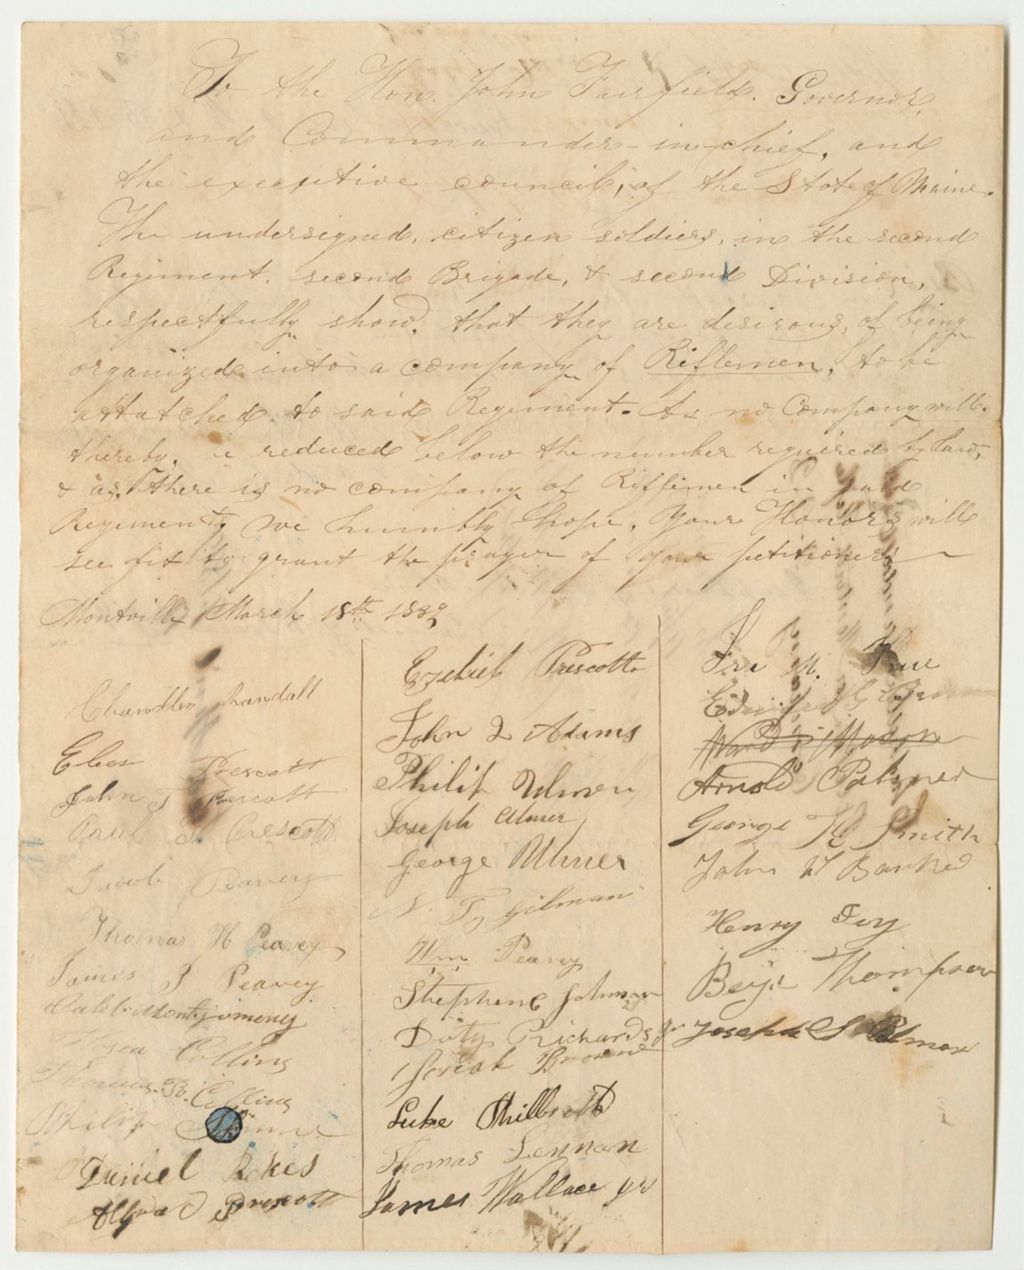 To the Hon. John Fairfield. Governor
and Commander-in-chief, and
the executive council, of the State of Maine.
The undersigned, citizen soldiers, in the second
Regiment, second Brigade, & second Division,
respectfully show, that they are desirous, of being
organized into a company of Riflemen, to be
attatched to said Regiment. As no Company will.
thereby, be reduced below the number required by law,
& as, there is no company of Riflimen in said
Regiment, we humbly hope, your Honors will
see fit to grant the prayer of your petitioners
Montville March 18th 1839
Chandler Randall
Eben Prescott
John S Prescott
Paul S Prescott
Jacob Peavery
Thomas H Peavey
James J Peavey
Caleb Montgomery
Collins
Thomas B. Collins
Philip
Daniel Rokes
Alfred Prescott
Ezekiel Prescott
John Q Adams
Philip Ulmer
Joseph Ulmer
George Ulmer
N. Ty Gilman
Wm Peavey
Stephen C Johnson
Doty Richards Jr
Josiah Brown
Luke Philbrook
Thomas Lennan
James Wallace jr
Ira M.
Arnold Palmer
George H Smith
John W Barker
Henry Foy
Benj. Thompson
Joseph S Palmer